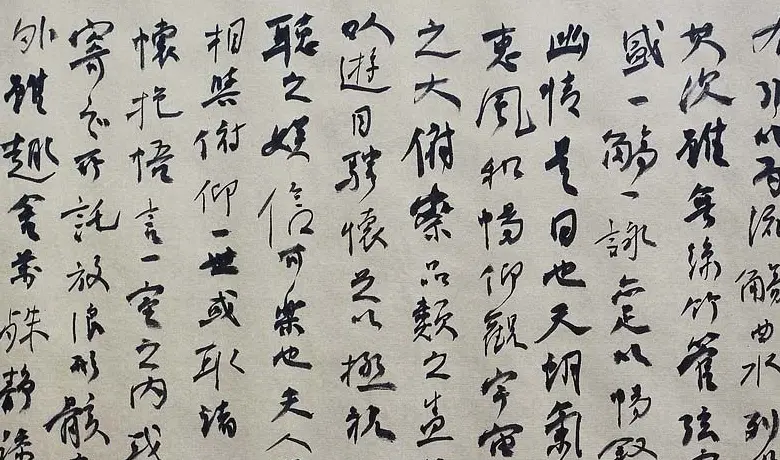 右引以為流觴曲水列
其次雖無絲竹管弦
盛一觴一詠亦足以暢敘
幽情是日也天朗氣
惠風和暢仰觀宇宙
之大俯察品類之盛
以遊目騁懷足以極視
聽之娛信可樂也夫人
相與俯仰一世或取諸
懷抱悟言一室之內或
寄所託放浪形骸
外雖趣舍萬殊靜躁